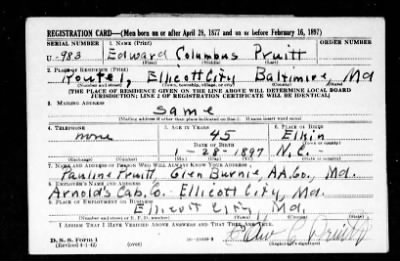 REGISTRATION CARD—(Men born on or after April 28, 1877 and on or before February 16, 1897)
SERIAL NUMBER 1. NAME (Print) ORDER NUMBER
U 983 Edward Columbus Pruitt
(First) (Middle) (Last)
2. PLACE OF RESIDENCE (Print)
Route 1, Ellicott City Baltimore, Md
(Number and street) (Town, township, village, or city) (County) (State)
[THE PLACE OF RESIDENCE GIVEN ON THE LINE ABOVE WILL DETERMINE LOCAL BOARD
JURISDICTION; LINE 2 OF REGISTRATION CERTIFICATE WILL BE IDENTICAL]
3. MAILING ADDRESS
Same
[Mailing address if other than place indicated on line 2. If same insert word same]
4. TELEPHONE 5. AGE IN YEARS 6. PLACE OF BIRTH
none 45 Elkin
DATE OF BIRTH (Town or county)
1-28-1897 N.C.
(Exchange) (Number) (Mo.) (Day) (Yr.) (State or country)
7. NAME AND ADDRESS OF PERSON WHO WILL ALWAYS KNOW YOUR ADDRESS
Pauline Pruitt, Glen Burnie, A.A. Co., Md.
8. EMPLOYER'S NAME AND ADDRESS
Arnold's Cab. Co. Ellicott City, Md.
9. PLACE OF EMPLOYMENT OR BUSINESS
Ellicott City, Md.
(Number and street or R. F. D. number) (Town) (County) (State)
I AFFIRM THAT I HAVE VERIFIED ABOVE ANSWERS AND THAT THEY ARE TRUE.
D. S. S. Form 1
(Revised 4-1-42) (over) (Registrant's signature)